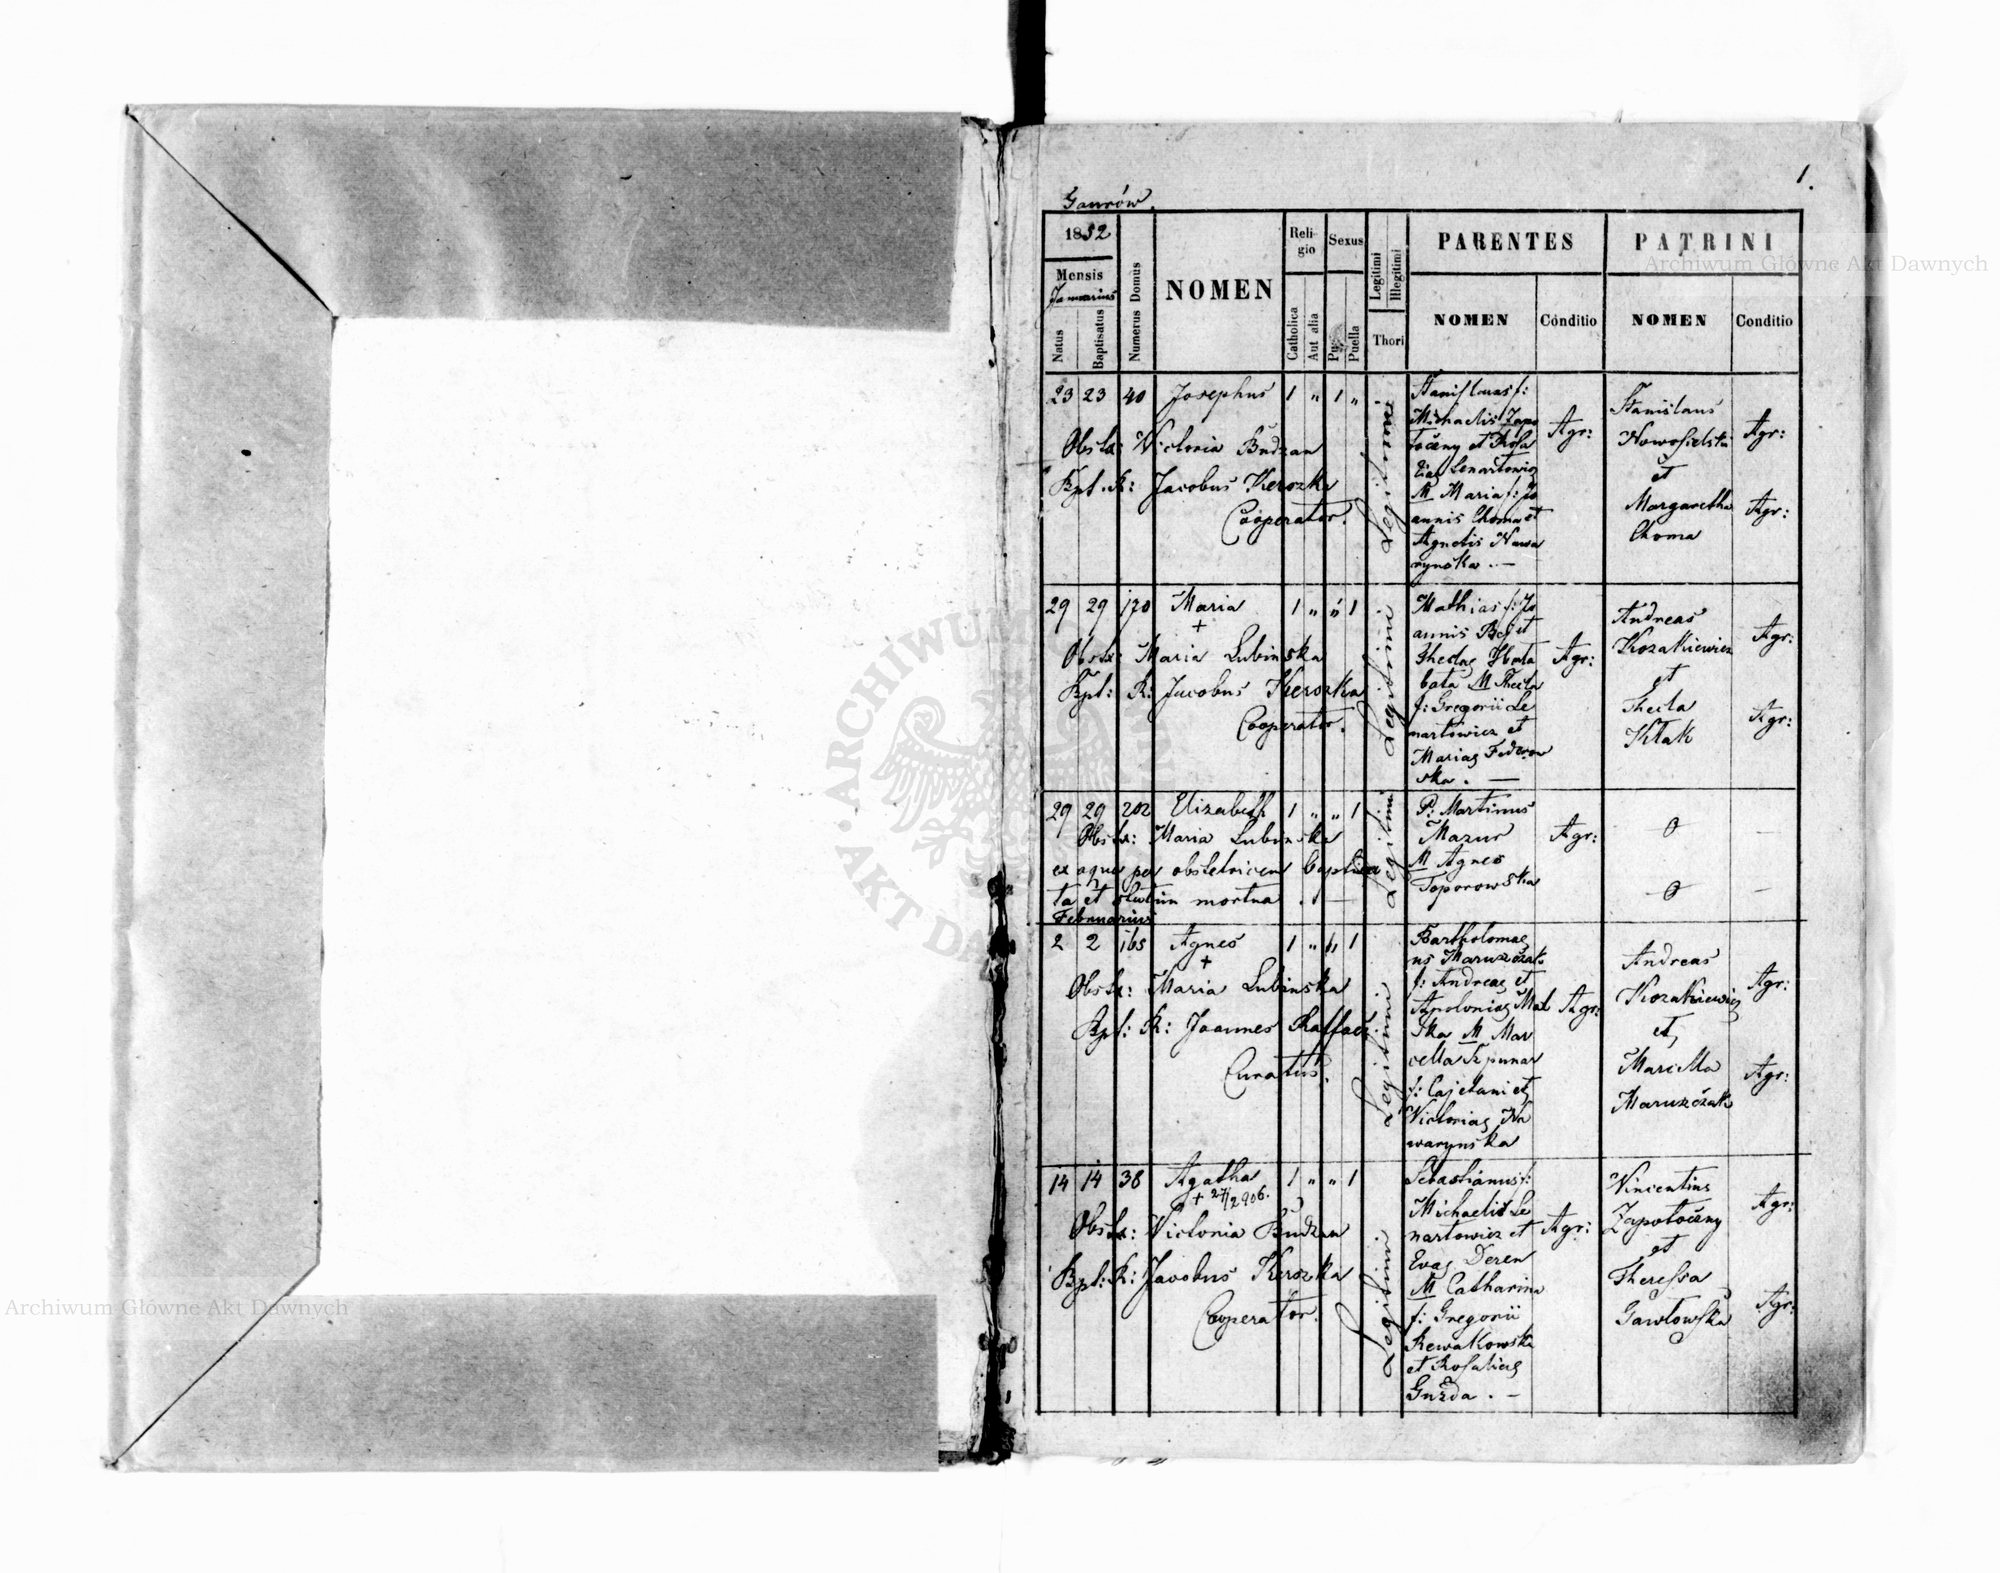 1.
Gawrów.
1852
Mensis
Januarius
Natus
Baptisatus
Numerus Domus
NOMEN
Reli-
gio
Catholica
Aut alia
Sexus
Puella
Legitimi
Illegitimi
Thori
PARENTES
NOMEN
Conditio
PATRINI
NOMEN
Conditio
23 23 40 Josephus 1 " 1 "
Obstx: Victoria Budzan
Bpt. R: Jacobus Keroszka
Cooperator.
Legitimi
Stanislaus f:
Michaelis Zapo
toczny et Rosa
liae Lenartowicz
M Maria f: Jo
annis Choma et
Agnetis Nawa
rynska . —
Agr:
Stanislaus
Nowosielski
et
Margaretha
Choma
Agr:
Agr:
29 29 170 Maria 1 " " 1
+
Obstx: Maria Lubinska
Bpt: R: Jacobus Keroszka
Cooperator.
Legitimi
Mathias f: Jo
annis Bes et
Theclae
bata M Thecla
f: Gregorii Le
nartowicz et
Mariae Fedorow
ska . —
Agr:
Andreas
Kozakiewicz
et
Thecla
Kłak
Agr:
Agr:
29 29 202 Elizabeth 1 " " 1
Obstx: Maria Lubinska
ex aqua per obstetricem baptisa
ta et statim mortua . —
Legitimi
P: Martinus
Mazur
M Agnes
Toporowska
Agr:
0 —
0 —
Februarius
2 2 165 Agnes 1 " " 1
+
Obstx: Maria Lubinska
Bpt: R: Joannes Raffacz
Curatus.
Legitimi
Bartholomae
us Maruszczak
f: Andreae et
Apoloniae Mal
ska M Mar
cella Szpunar
f: Cajetani et
Victoriae Na
warynska
Agr:
Andreas
Kozakiewicz
et
Marcella
Maruszczak
Agr:
Agr:
14 14 38 Agatha 1 " " 1
+ 27/2 906.
Obstx: Victoria Budzan
Bpt: R: Jacobus Keroszka
Cooperator.
Legitimi
Sebastianus f:
Michaelis Le
nartowicz et
Evae Deren
M Catharina
f: Gregorii
Rewakowska
et Rosaliae
Guzda . —
Agr:
Vincentius
Zapotoczny
et
Theressa
Gawłowska
Agr:
Agr:
Archiwum Główne Akt Dawnych
Archiwum Główne Akt Dawnych